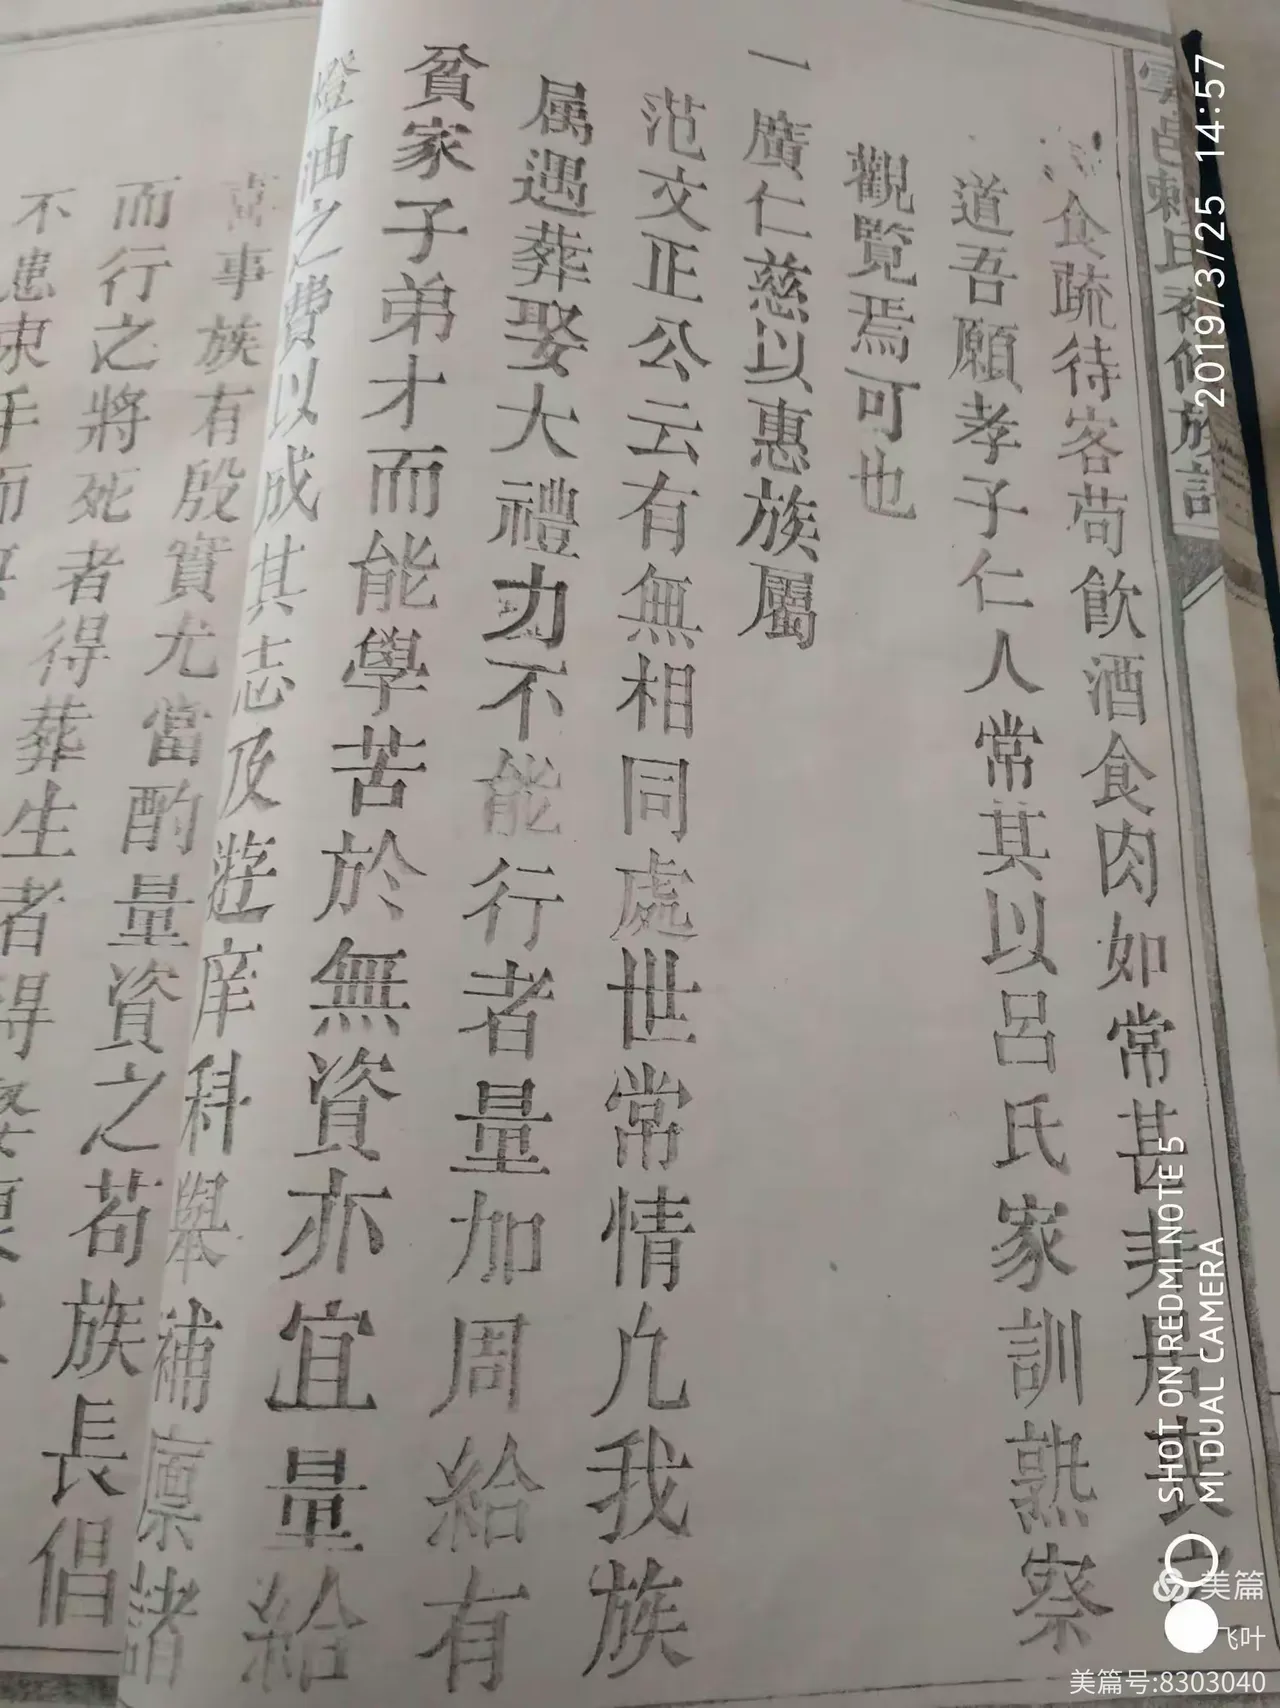 食疏待客苟飲酒食肉如常甚非居喪之
道吾願孝子仁人常其以呂氏家訓熟察
觀覽焉可也
一廣仁慈以惠族屬
范文正公云有無相同處世常情凢我族
属遇葬娶大禮力不能行者量加周給有
貧家子弟才而能學苦於無資亦宜量給
燈油之費以成其志及遊庠科舉補廪諸
喜事族有殷實尤當酌量資之苟族長倡
而行之將死者得葬生者得
不患東手而
氏修族
2019/3/25 14:57
SHOT ON REDMI NOTE 5
MI DUAL CAMERA
美篇
飞叶
美篇号:8303040